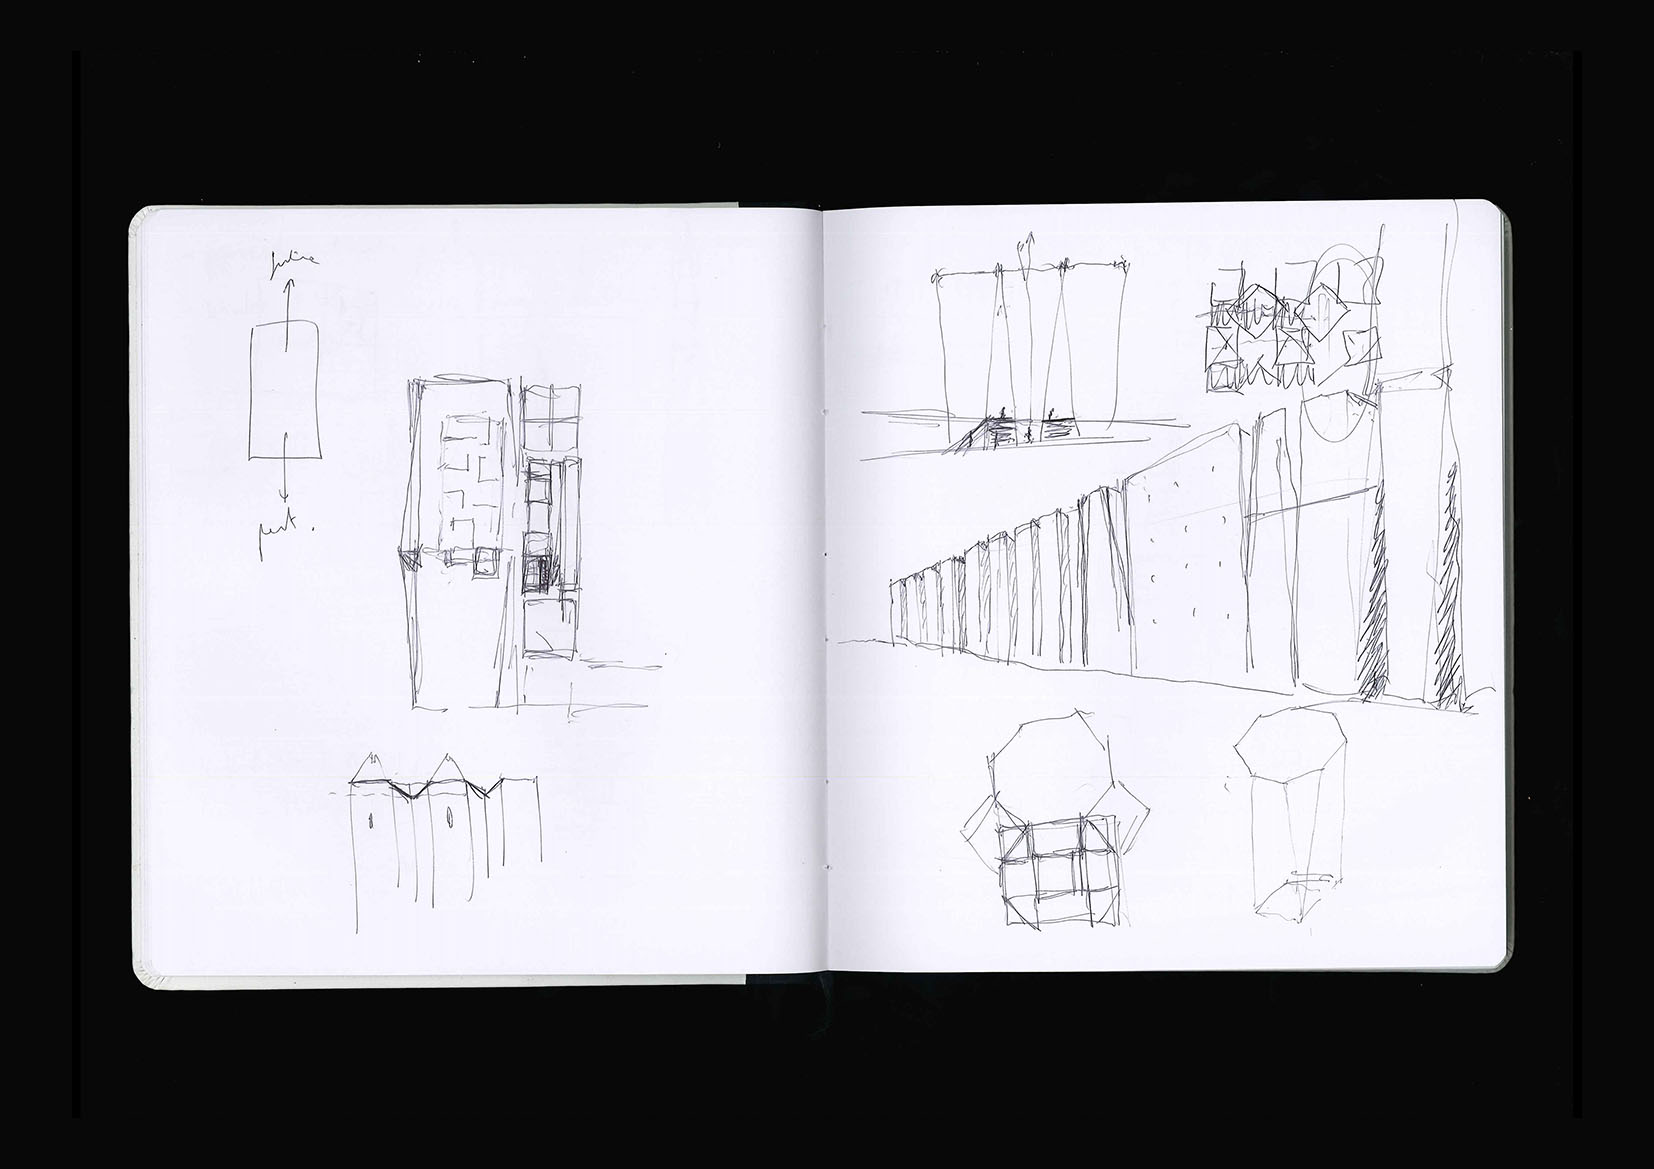 future
past.